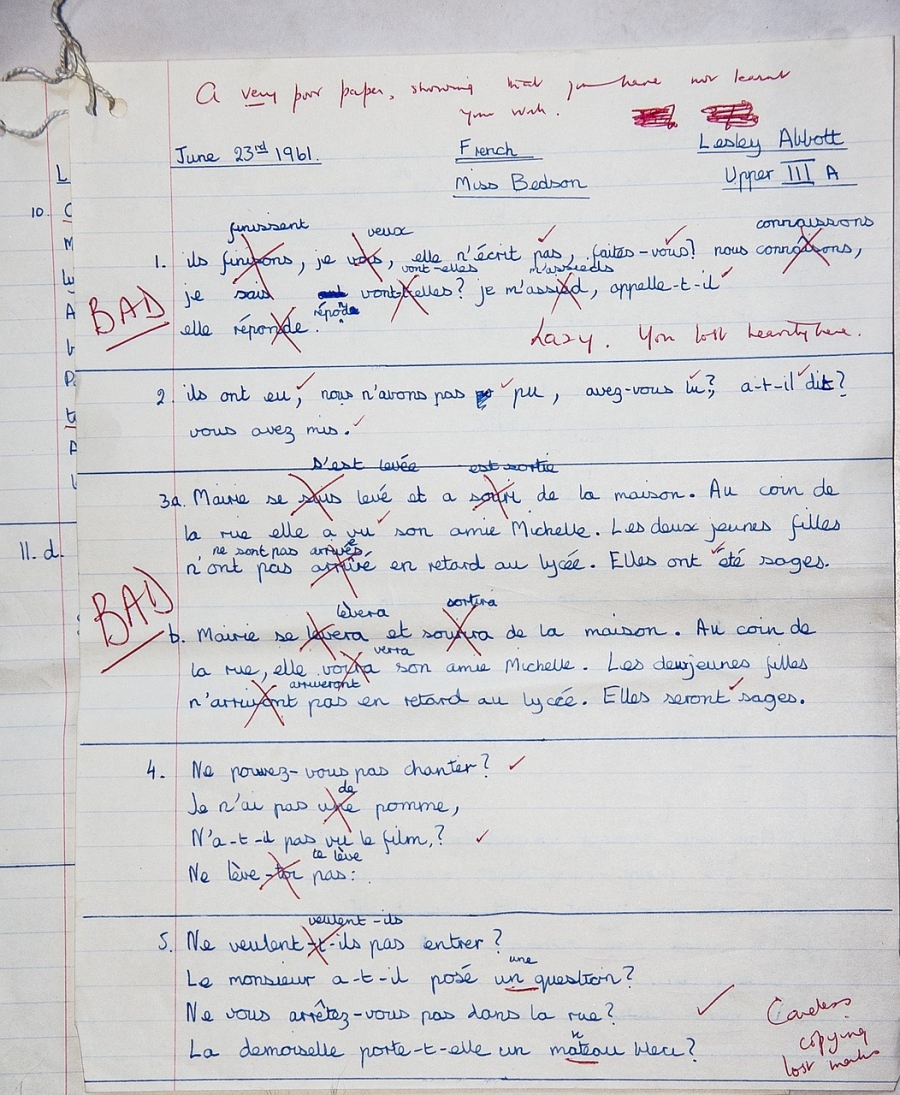 A very poor paper, showing that you have not learnt
your work.
June 23rd 1961.
French
Lesley Abbott
Miss Bedson
Upper III A
finissent veux connaissons
1. ils finisons, je vous, elle n'écrit pas, faites-vous? nous connâisons,
vont-elles m'assieds
je sais vont-t-elles? je m'assied, appelle-t-il
BAD
elle réponde. répond
Lazy. You lost heavily here.
2. ils ont eu, nous n'avons pas pu, avez-vous lu?, a-t-il dit?
vous avez mis.
s'est levée est sortie
3a. Mairie se levé et a souri de la maison. Au coin de
la rue elle a vu son amie Michelle. Les deux jeunes filles
ne sont pas arrivés
n'ont pas arrivé en retard au lycée. Elles ont été sages.
BAD
lèvera sortira
b. Mairie se levera et sourira de la maison. Au coin de
verra
la rue, elle voira son amie Michelle. Les deux jeunes filles
arriveront
n'arrivont pas en retard au lycée. Elles seront sages.
4. Ne pouvez-vous pas chanter?
de
Je n'ai pas une pomme,
N'a-t-il pas vu le film,?
te lève
Ne lève-toi pas:
veulent-ils
5. Ne veulent-t-ils pas entrer?
une
Le monsieur a-t-il posé un question?
Ne vous arrêtez-vous pas dans la rue?
n
La demoiselle porte-t-elle un mateau bleu?
Careless
copying
lost marks
L
10. C
M
A
P.
11. d.